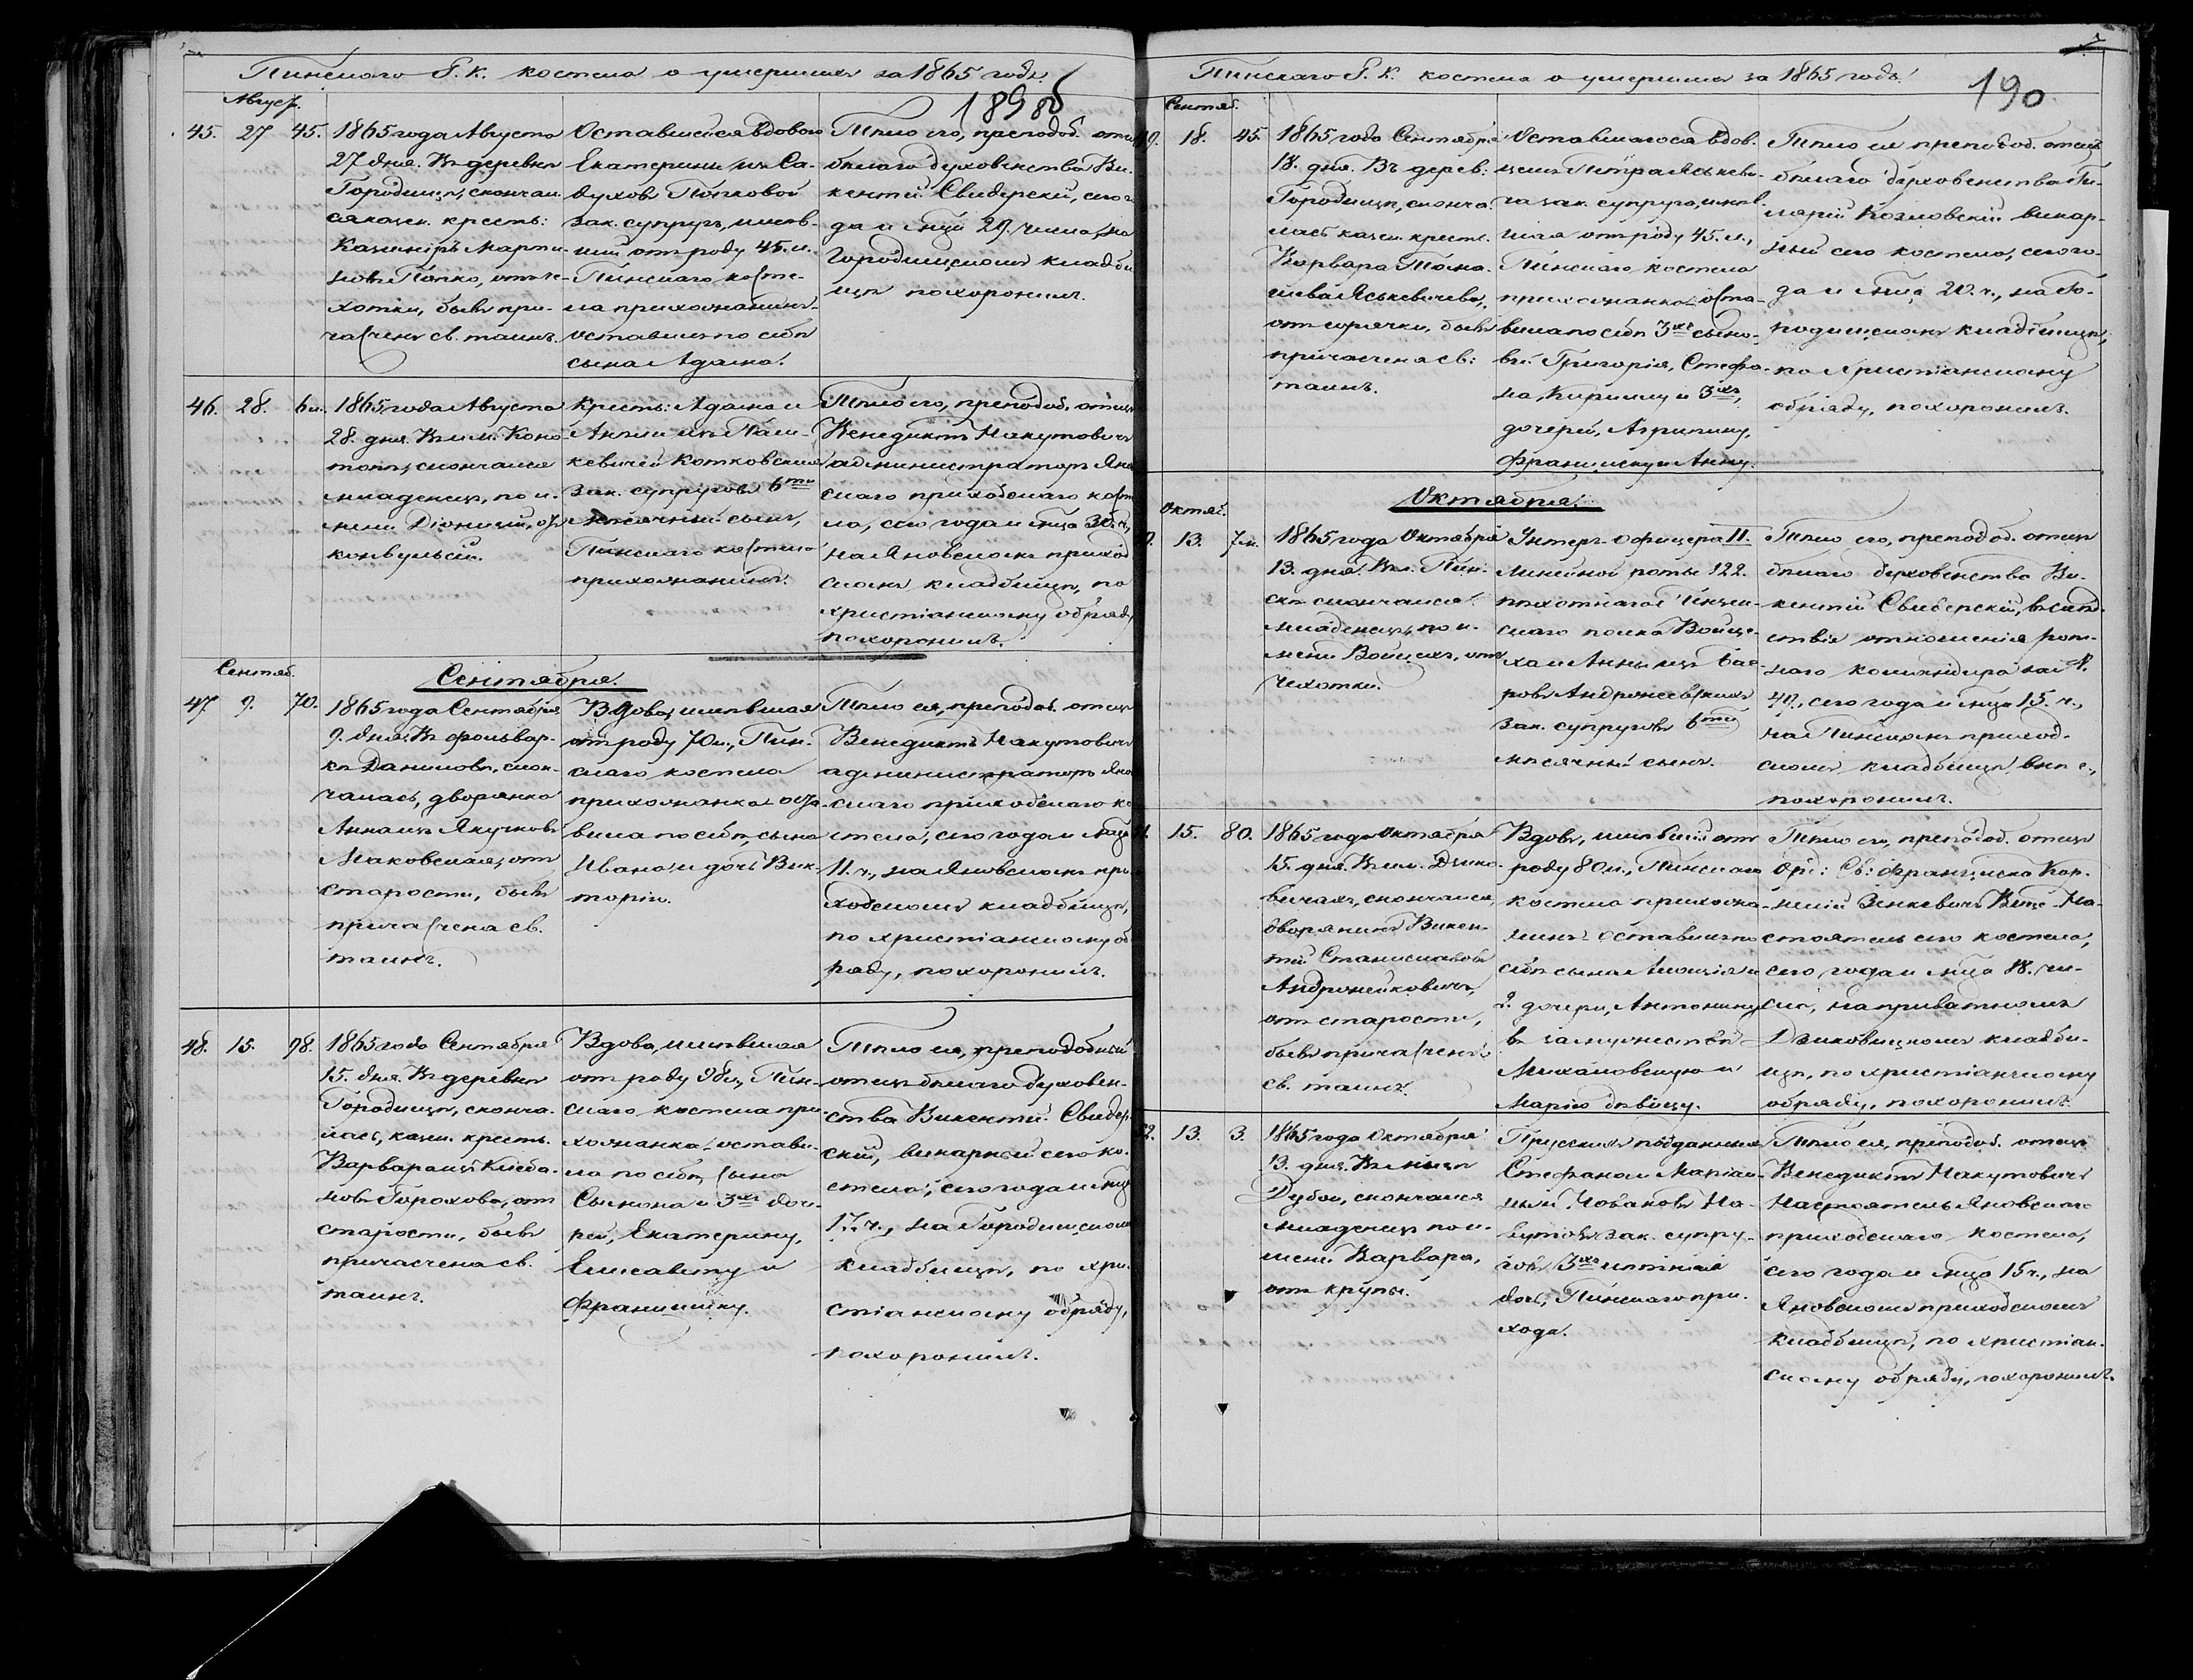 Пинскаго Р. К. костела о умершихъ за 1865 годъ.
189 об
Август.
45. 27 45.
1865 года Августа
27 дня. Въ деревнѣ
Городищѣ, скончал
ся казен. кресть:
Казиміръ Марти-
новъ Попко, отъ че-
хотки, бывъ при-
частенъ св. таинъ.
Оставшейся вдовою
Екатерины изъ Са-
Попковой
зак. супругъ, имѣв-
шій отъ роду 45. л.
Пинскаго косте-
ла прихожанинъ
оставилъ по себѣ
сына Адама.
Тѣло его, преподоб. отецъ
бѣлаго духовенства Ви-
кентій Свидерскій, сего го
да и мца 29. числа, на
Городищскомъ кладби
щѣ похоронилъ.
46. 28. 6 м.
1865 года Августа
28. дня. Въ им. Коно
топѣ, скончался
младенецъ, по и-
мени Діонизій, отъ
конвульсіи.
Кресть: Адама и
Анели изъ
Котковскихъ
зак. супруговъ 6ти
мѣсячный сынъ,
Пинскаго костела
прихожанинъ.
Тѣло его, преподоб. отецъ
Венедиктъ Накутовичъ
администраторъ Янов
скаго приходскаго косте
ла, сего года и мца 30. ч.,
на Яновскомъ приход
скомъ кладбищѣ, по
христіанскому обряду
похоронилъ.
Сентяб.
Сентября.
47 9. 70.
1865 года Сентября
9. дня. Въ фольвар-
кѣ Даниловѣ, скон-
чалась, дворянка
Анна изъ Якучковъ
Маковская, отъ
старости, бывъ
причастена св.
таинъ.
Вдова, имѣвшая
отъ роду 70 л., Пин-
скаго костела
прихожанка оста-
вила по себѣ, сына
Ивана и дочь Вик-
торію.
Тѣло ея, преподоб. отецъ
Венедиктъ Накутовичъ
администраторъ Янов
скаго приходскаго ко
стела, сего года и мца
11. ч., на Яновскомъ при
ходскомъ кладбищѣ,
по христіанскому об
ряду, похоронилъ.
48. 15. 98.
1865 года Сентября
15. дня. Въ деревнѣ
Городищѣ, сконча-
лась, казен. кресть.
Варвара изъ
Горохова, отъ
старости, бывъ
причастена св.
таинъ.
Вдова, имѣвшая
отъ роду 98 л., Пин-
скаго костела при
хожанка остави-
ла по себѣ, сына
Сымона и 3хъ доче-
рей, Екатерину,
Елисавету и
Францишку.
Тѣло ея, преподобный
отецъ бѣлаго духовен-
ства Викентій Свидер
скій, викарный сего ко-
стела, сего года и мца
17. ч., на Городищском
кладбищѣ, по хри-
стіанскому обряду,
похоронилъ.
Пинскаго Р. К. костела о умершихъ за 1865 годъ.
190
Сентяб.
49. 18. 45.
1865 года Сентября
18. дня. Въ дерев:
Городищѣ, сконча-
лась казен. крест.
Варвара
Яськевичева,
отъ горячки, бывъ
причастена св:
таинъ.
Оставшагося вдов-
цемъ Петра Яськеви-
ча зак. супруга, имѣв-
шая отъ роду 45. л.,
Пинскаго костела
прихожанка оста-
вила по себѣ 3хъ сыно-
вей Григорія, Стефа-
на, Кириллу и 3хъ,
дочерей, Агрипину,
Францишку и Анну.
Тѣло ея преподоб. отецъ
бѣлаго духовенства Ги-
ларій Козловскій викар-
ный сего костела, сего го-
да и мца 20. ч., на Го-
родищскомъ кладбищѣ,
по Христіанскому
обряду, похоронилъ.
Октяб.
Октября.
13. 7 м.
1865 года Октября
13. дня. Въ г. Пин-
скѣ скончался
младенецъ, по и-
мени Войцехъ, отъ
чехотки.
Унтеръ-Офицера II.
линейной роты 122.
пѣхотнаго
скаго полка Войце-
ха и Анны изъ
Андржеевскихъ
зак. супруговъ 6ти
мѣсячный сынъ.
Тѣло его, преподоб. отецъ
бѣлаго духовенства Ви-
кентій Свидерскій, вслѣд-
ствіе отношенія рот-
наго командира за №.
сего года и мца 15. ч.,
на Пинскомъ приход-
скомъ кладбищѣ,
похоронилъ.
15. 80.
1865 года Октября
15. дня. Въ им. Дзико-
вичахъ, скончался,
дворянинъ Викен-
тій Станиславовъ
Андронейковичъ,
отъ старости,
бывъ причастенъ
св. таинъ.
Вдовъ, имѣвшій отъ
роду 80 л., Пинскаго
костела прихожа-
нинъ оставилъ по
себѣ сына и
2. дочери, Антонину
въ замужествѣ
Михаловскую и
Марію дѣвицу.
Тѣло его, преподоб. отецъ
Орд: Св: Франциска Кор-
нелій Зенкевичъ Вице-На-
стоятель сего костела,
сего года и мца 18. чи-
сла, на приватномъ
Дзиковицкомъ кладби-
щѣ, по христіанскому
обряду, похоронилъ.
13. 3.
1865 года Октября
13. дня. Въ
Дубои, скончался
младенецъ по и-
мени Варвара,
отъ крупы.
Прусскихъ подданныхъ
Стефана и Маріан-
ны
зак. супру-
говъ 3хъ лѣтняя
дочь, Пинскаго при-
хода.
Тѣло ея, преподоб. отецъ
Венедиктъ Накутовичъ
Настоятель Яновскаго
приходскаго костела,
сего года и мца 15 ч., на
Яновскомъ приходскомъ
кладбищѣ, по христіан-
скому обряду, похоронилъ.